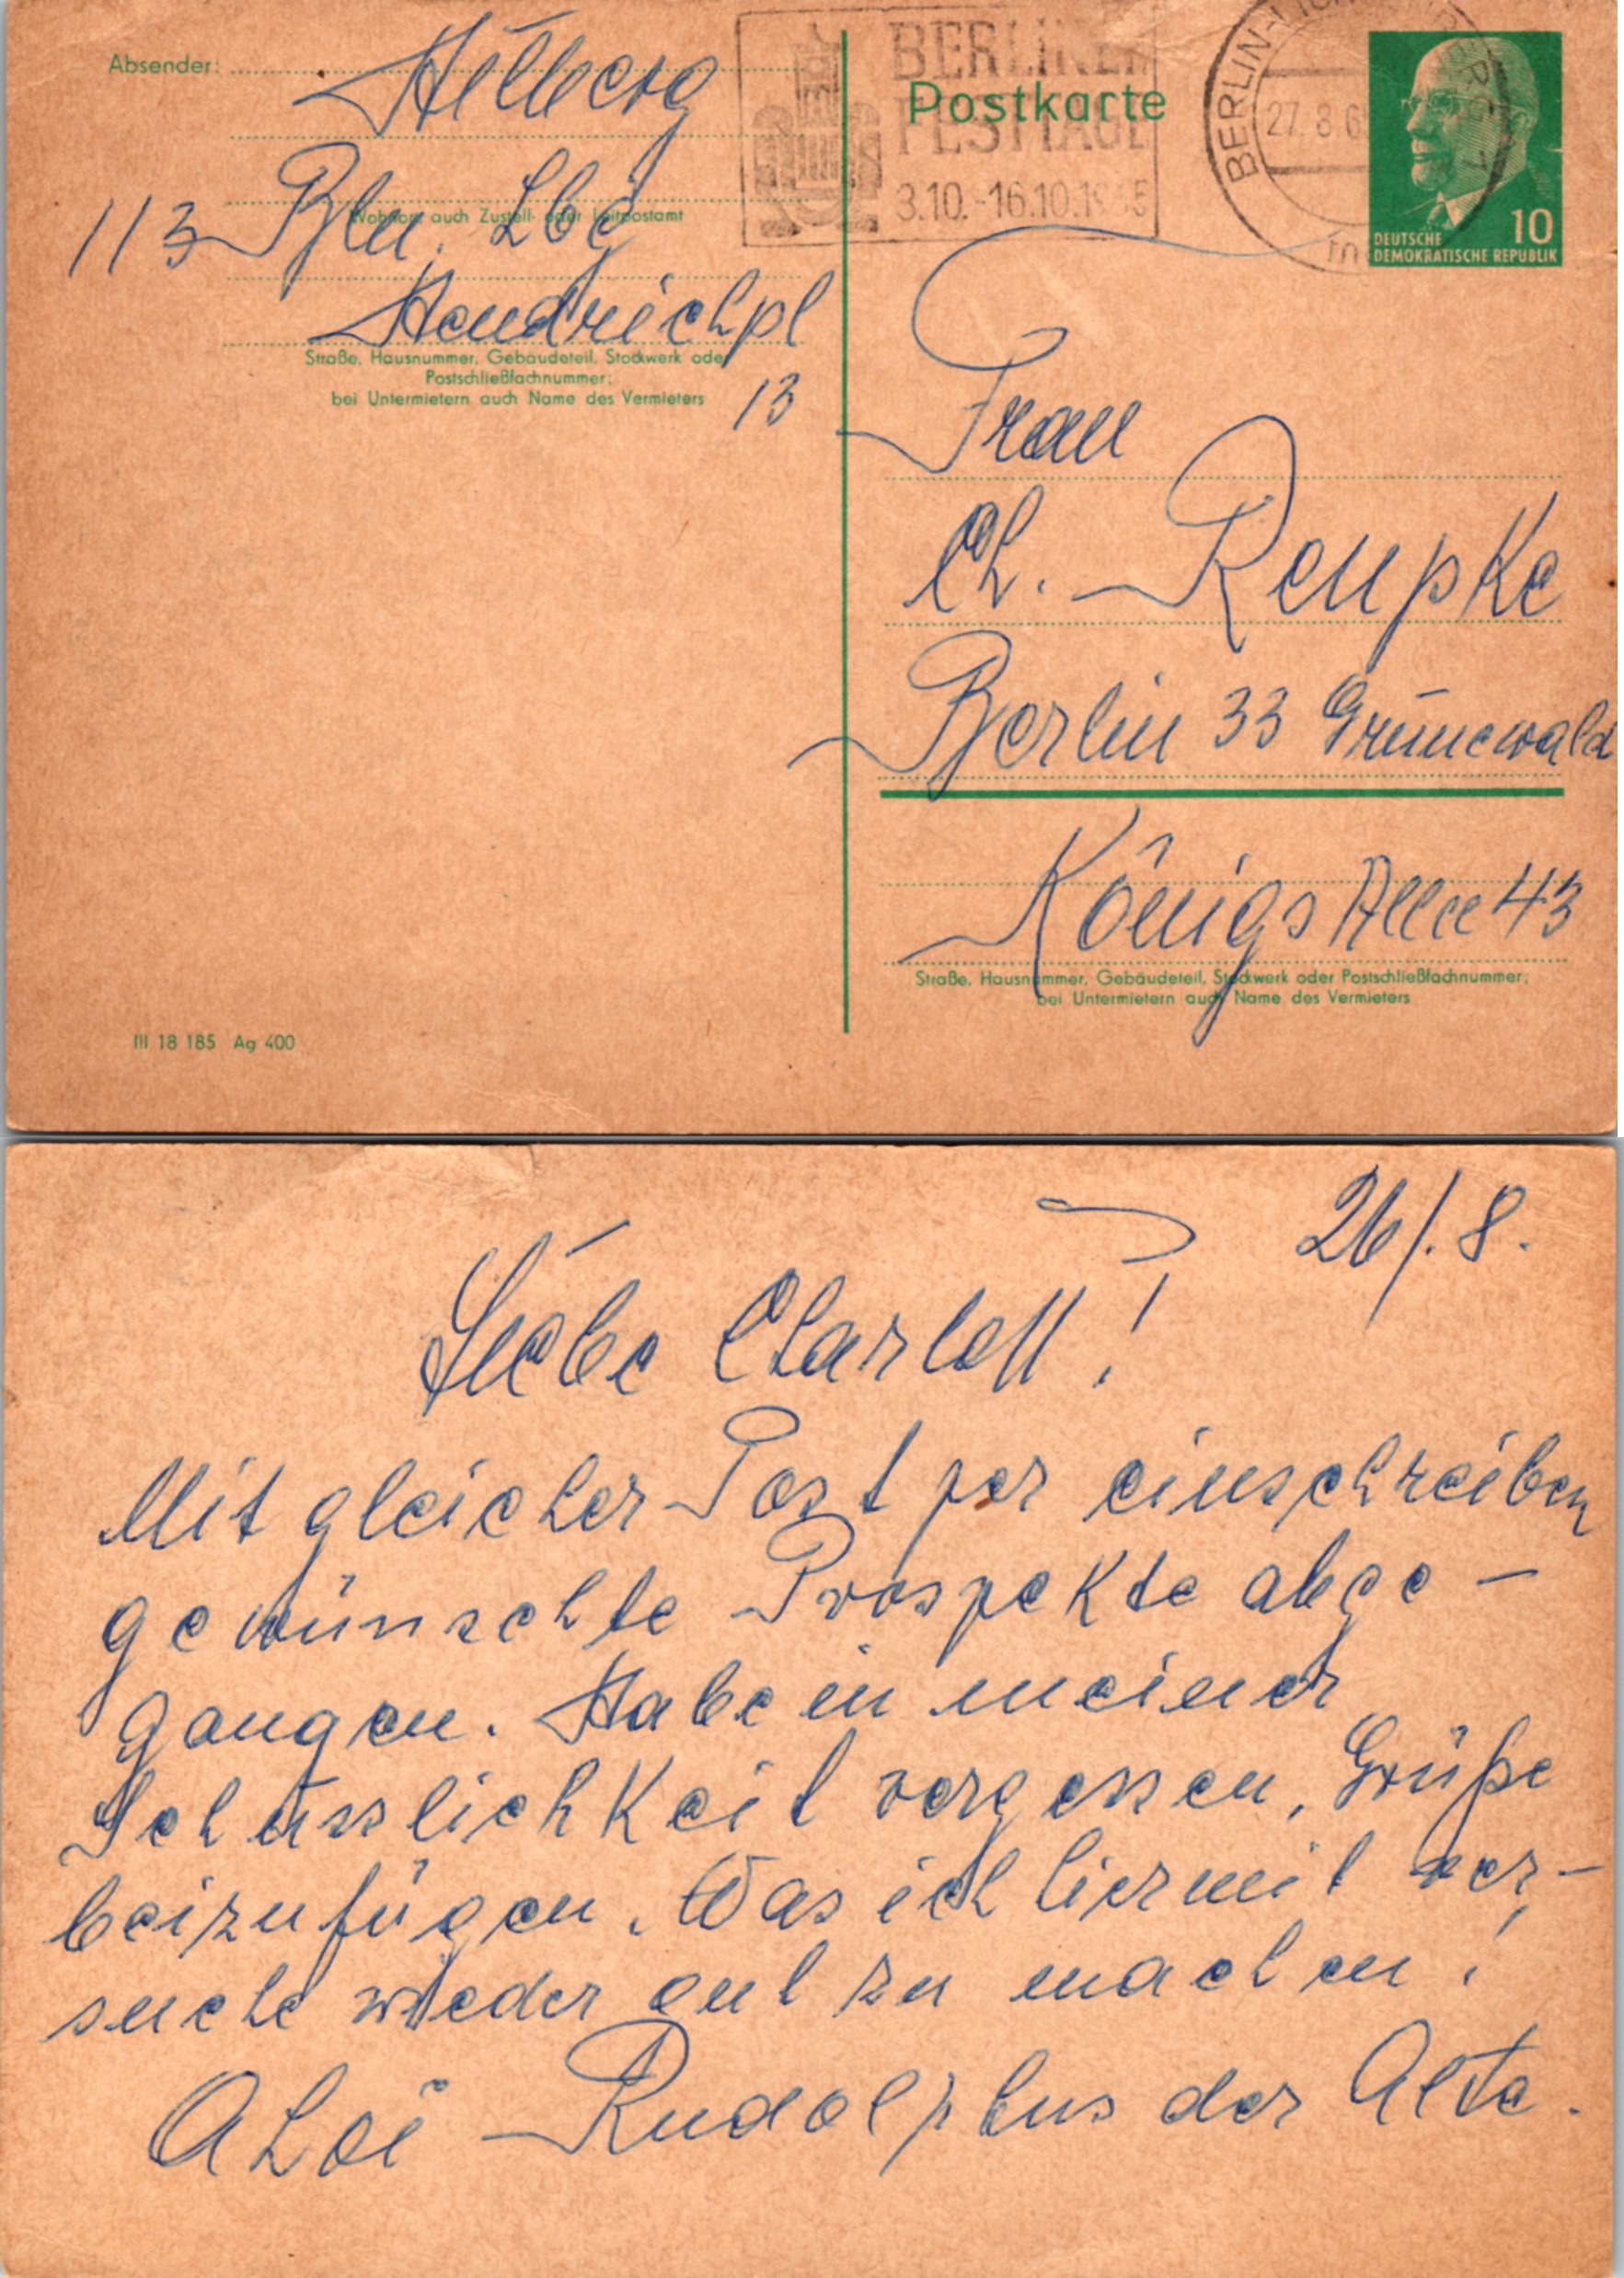 Absender:
Hilberg
113 Bln. Lbg
Wohnort, auch Zustell- oder Leitpostamt
Hendrichpl
Straße, Hausnummer, Gebäudeteil, Stockwerk oder
Postschließfachnummer;
bei Untermietern auch Name des Vermieters
13
III 18 185 Ag 400
BERLINER
FESTTAGE
3.10.-16.10.1965
Postkarte
BERLIN-LICHTENBERG 1
27. 8 6
m
10
DEUTSCHE
DEMOKRATISCHE REPUBLIK
Frau
Ch. Reupke
Berlin 33 Grunewald
Königs Allee 43
Straße, Hausnummer, Gebäudeteil, Stockwerk oder Postschließfachnummer;
bei Untermietern auch Name des Vermieters
26/. 8.
Liebe Charlott!
Mit gleicher Post per einschreiben
gewünschte Prospekte abge-
gangen. Habe in meiner
Schusslichkeit vergessen, Grüße
beizufügen. Was ich hiermit ver-
suche wieder gut zu machen!
Ahoi Rudolphus der Alte.